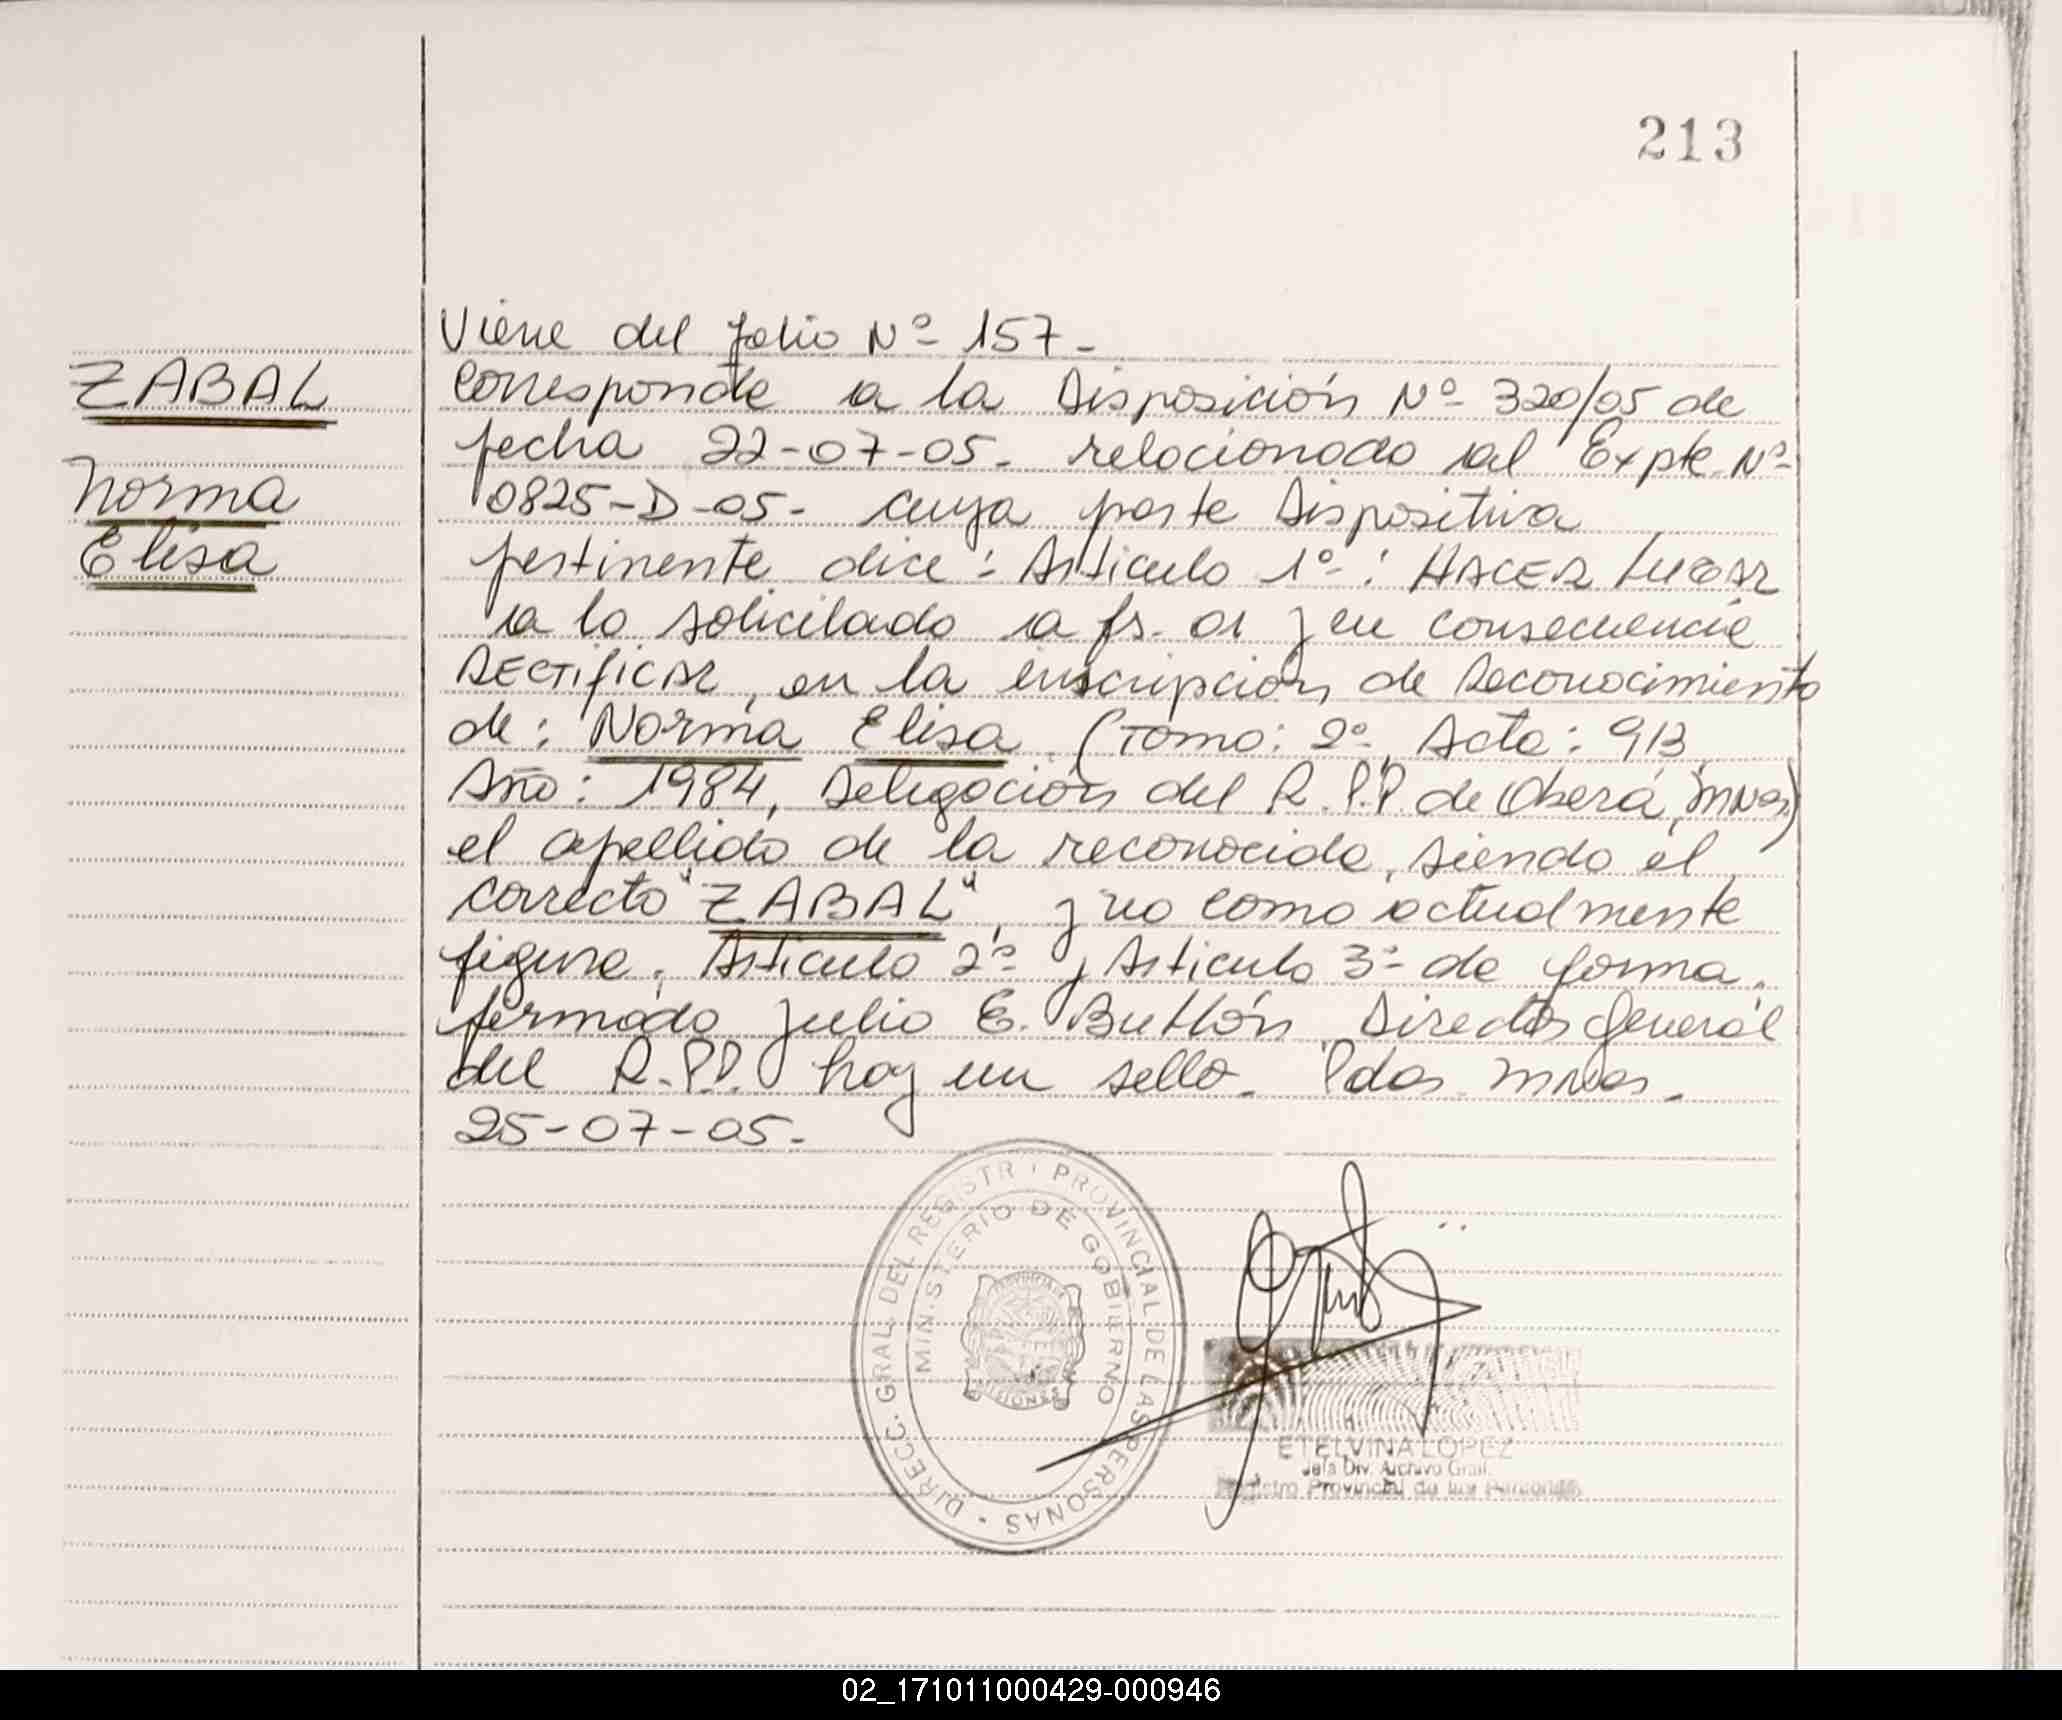 213
ZABAL
Norma
Elisa
Viene del folio Nº 157-
Corresponde a la Disposición Nº 320/05 de
fecha 22-07-05- relacionado al Expte Nº
0825-D-05- cuya parte Dispositiva
pertinente dice: Articulo 1º: HACER LUGAR
a lo solicitado a fs. 01 y en consecuencia
RECTIFICAR, en la inscripción de Reconocimiento
de: Norma Elisa (Tomo: 2º Acta: 913
Año: 1984, Delegación del R.P.P. de Oberá, Mnes)
el apellido de la reconocida, siendo el
correcto "ZABAL" y no como actualmente
figura. Articulo 2º y Articulo 3º de forma.
firmado Julio E. Buttón Director General
del R.P.P. hay un sello- Pdas Mnes-
25-07-05-
DIRECC. GRAL. DEL REGISTR PROVINCIAL DE LAS PERSONAS
MIN·STERIO DE GOBIERNO
PROVINCIA
MISIONES
ETELVINA LOPEZ
Jefa Div. Archivo Gral.
Registro Provincial de las Personas
02_171011000429-000946